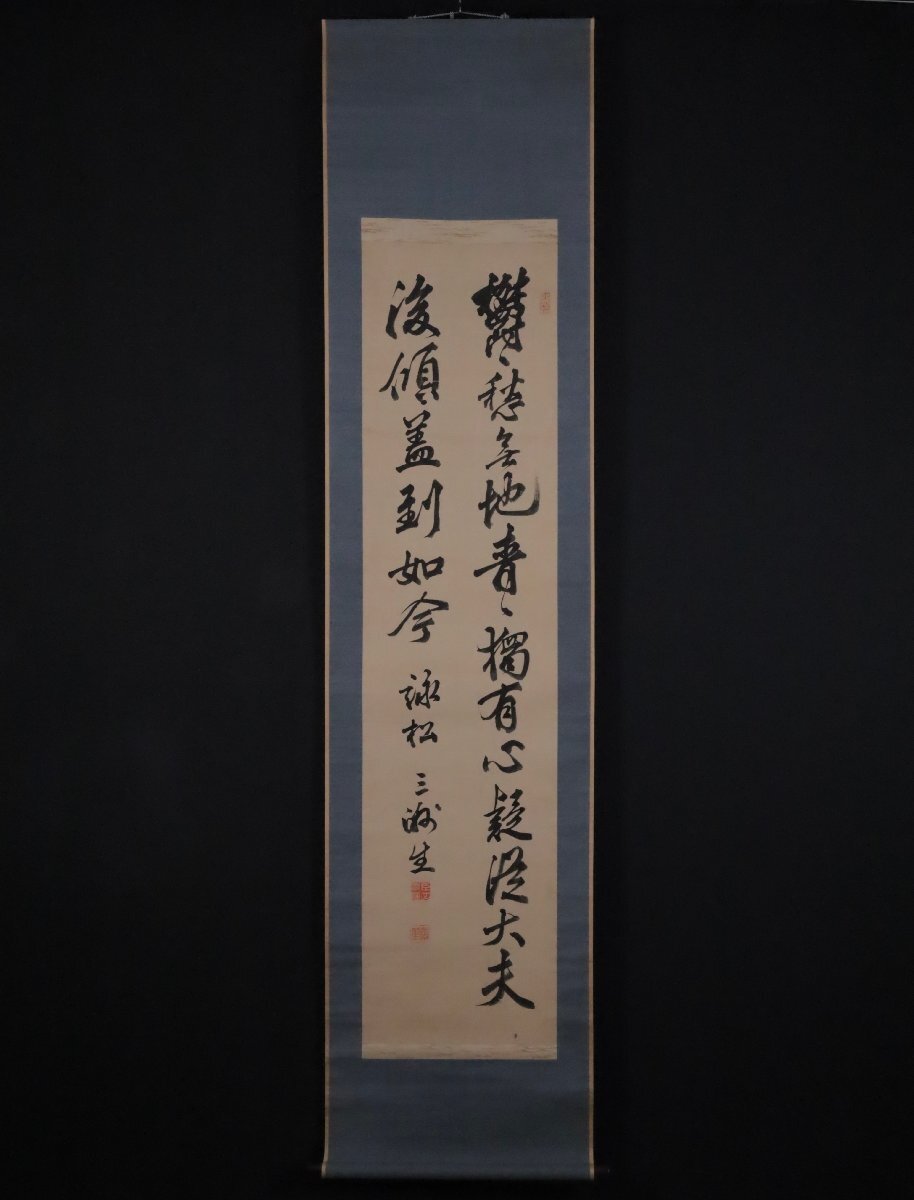 鬱〻愁無地青〻獨有心疑從大夫
後傾蓋到如今 詠松 三洲生